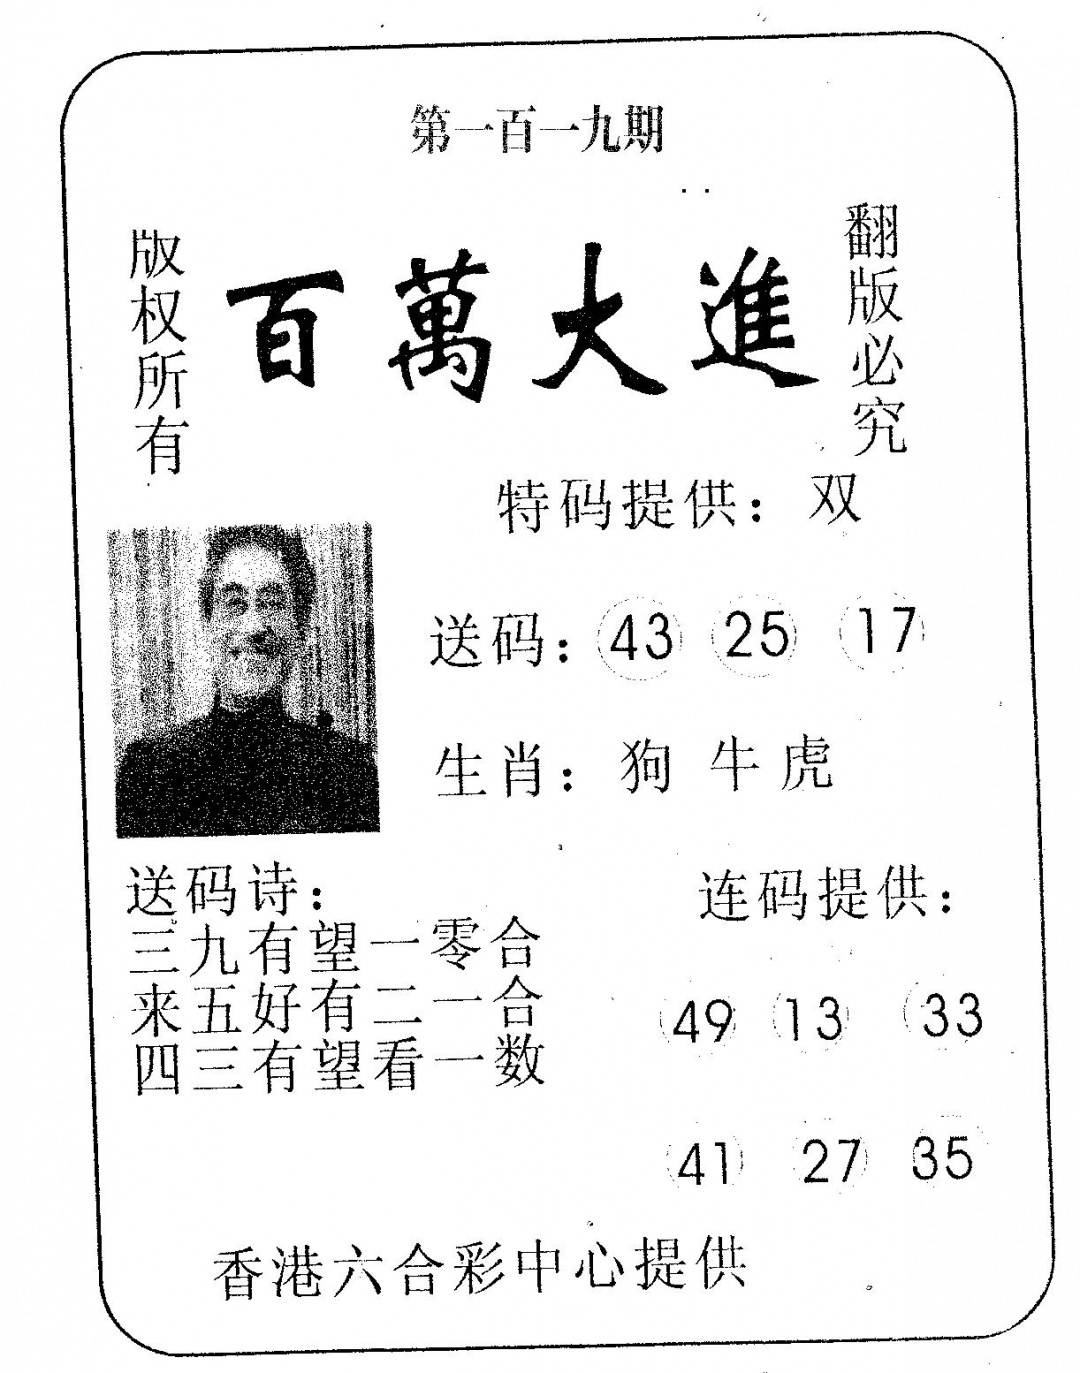 第一百一九期
版权所有
百萬大進
翻版必究
特码提供：双
送码：43 25 17
生肖：狗 牛 虎
送码诗：
三九有望一零合
来五好有二一合
四三有望看一数
连码提供：
49 13 33
41 27 35
香港六合彩中心提供